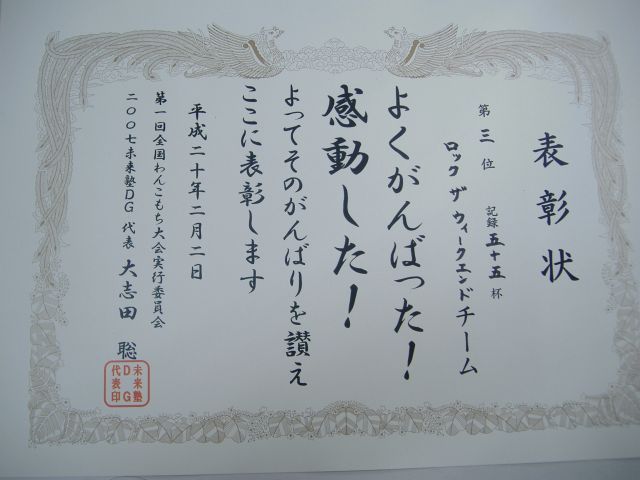 表彰状
第三位 記録五十五杯
ロック ザ ウィークエンドチーム
よくがんばった!
感動した!
よってそのがんばりを讃え
ここに表彰します
平成二十年二月二日
第一回全国わんこもち大会実行委員会
二〇〇七未来塾DG 代表 大志田 聡
未来塾
DG
代表印